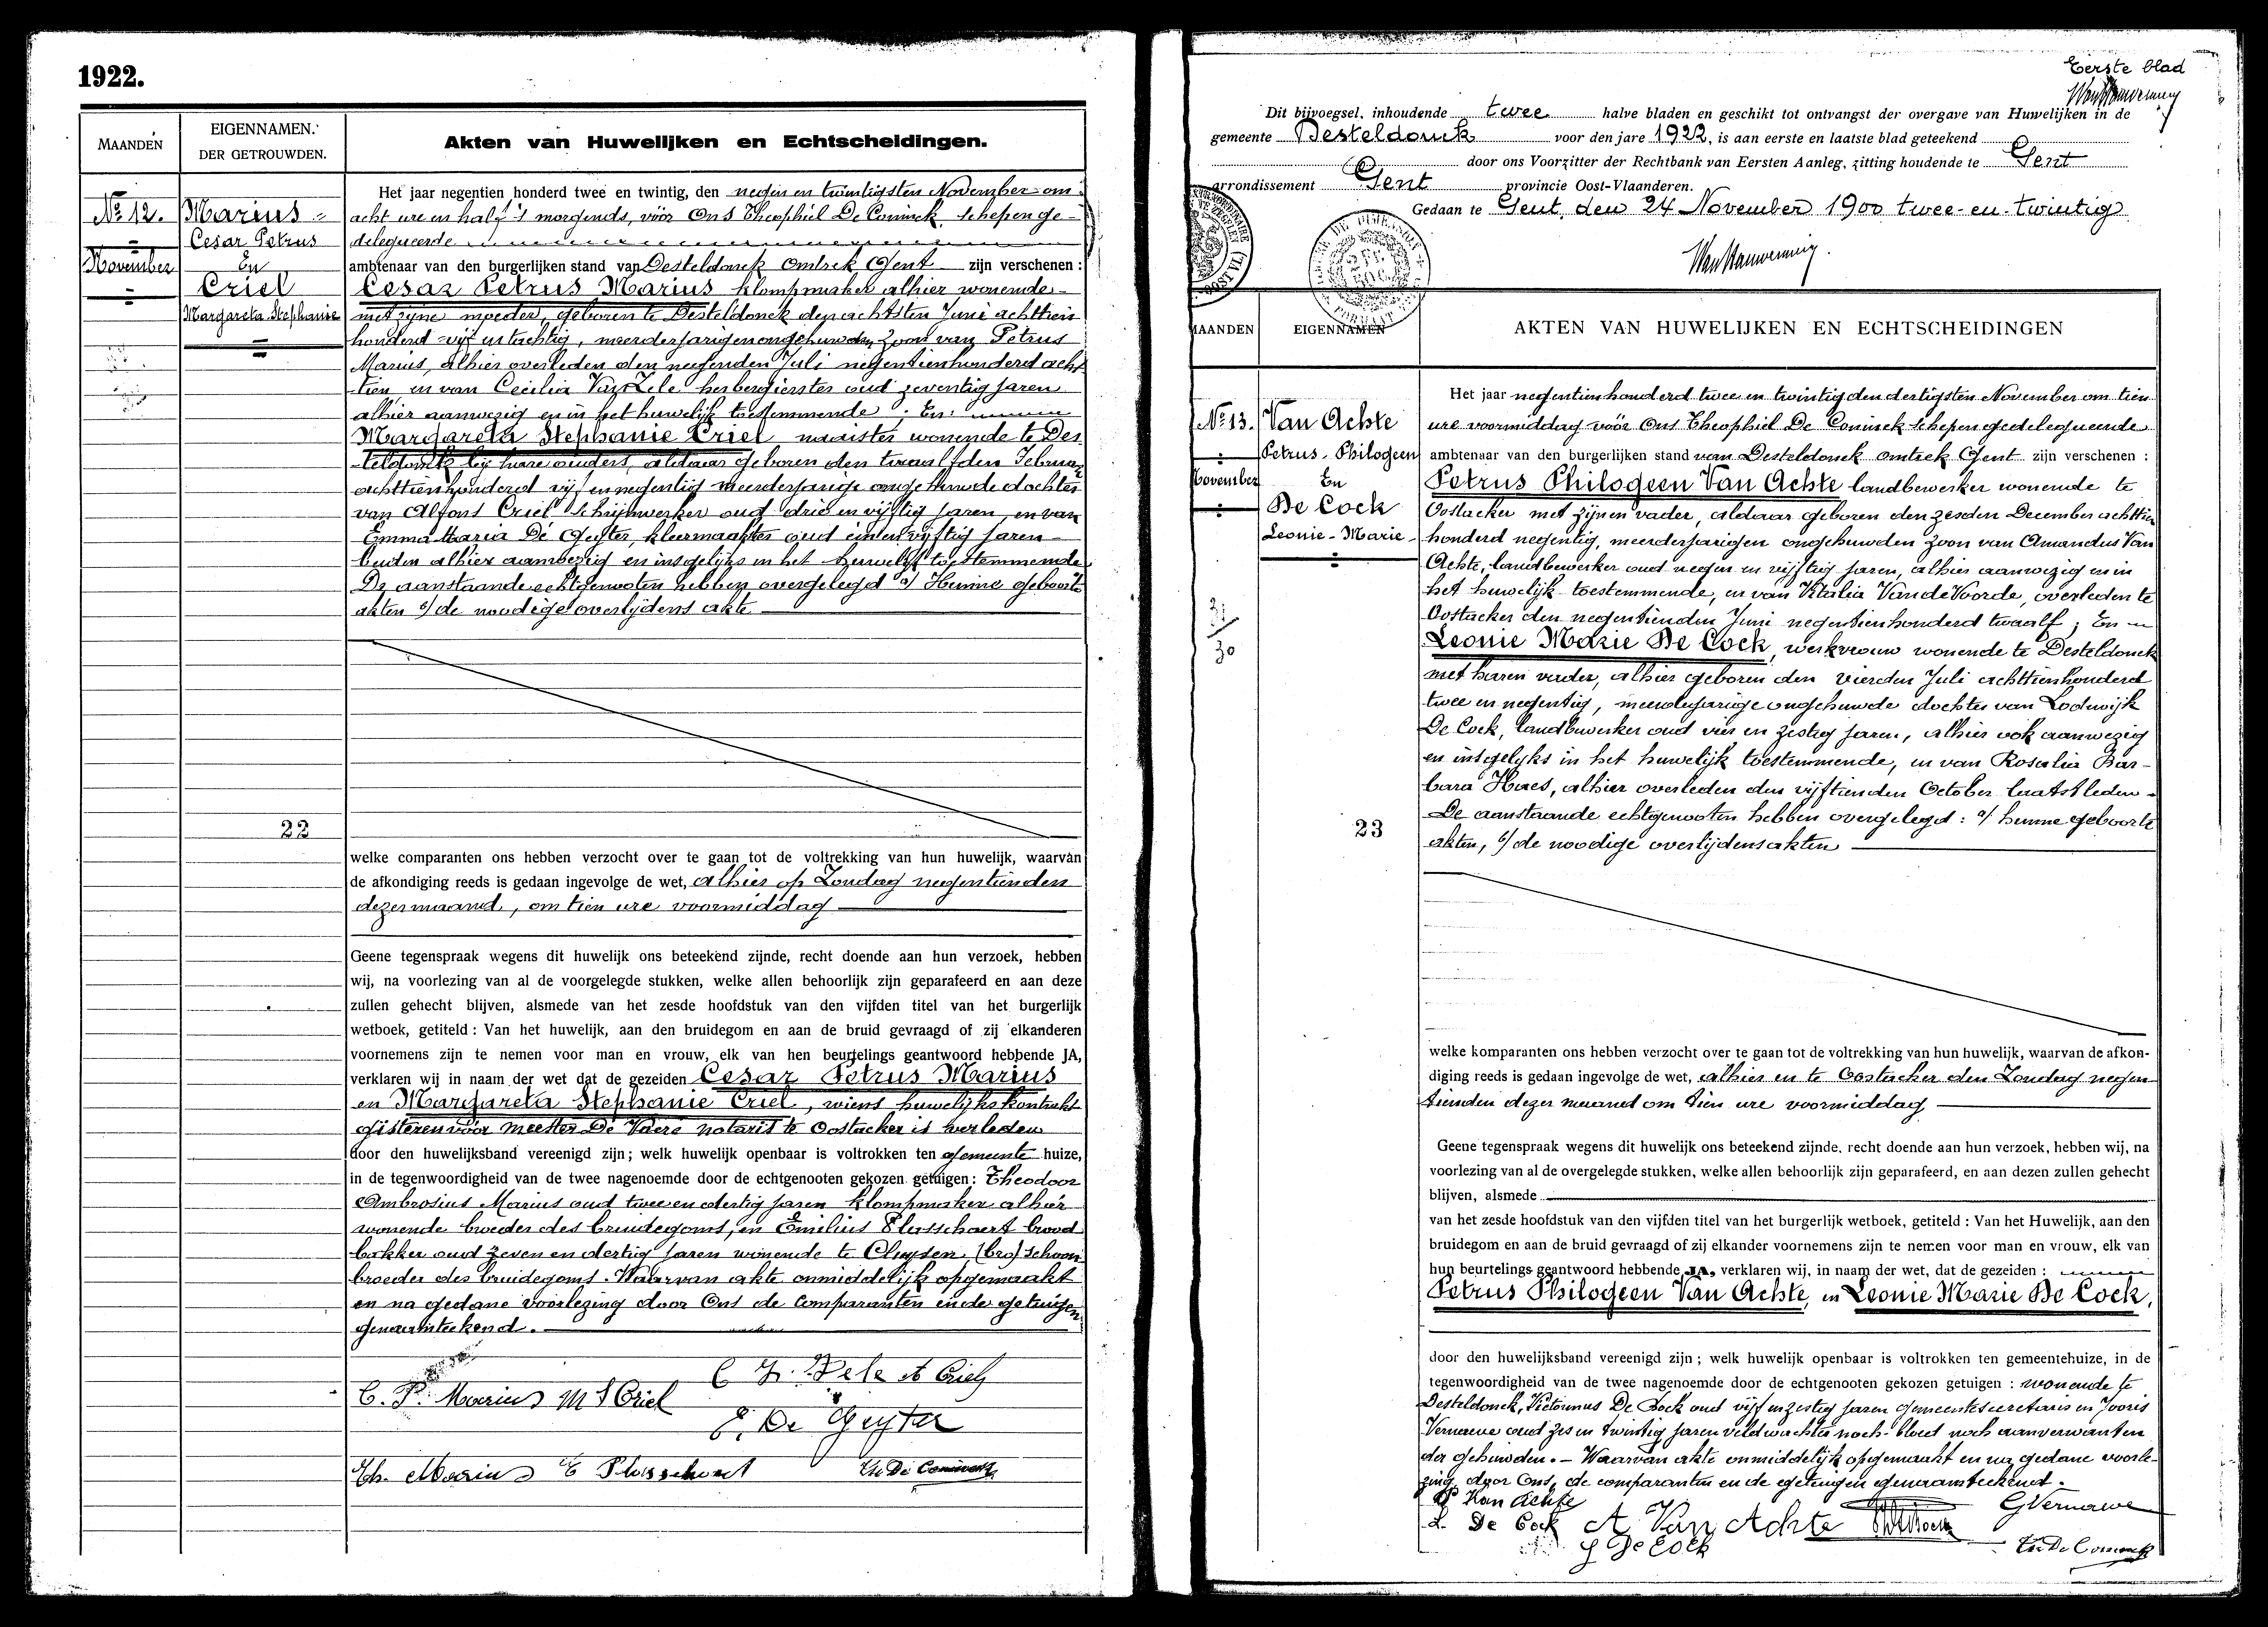 1922.
MAANDEN
EIGENNAMEN.
DER GETROUWDEN.
Akten van Huwelijken en Echtscheidingen.
No 12.
November
Marius
Cesar Petrus
En
Criel
Margareta Stephanie
22
Het jaar negentien honderd twee en twintig, den negen en twintigsten November om
acht ure en half 's morgends, vóór Ons Theophiel De Coninck, schepen ge-
delegueerde
ambtenaar van den burgerlijken stand van Desteldonck omtrek Gent zijn verschenen :
Cesar Petrus Marius klompmaker alhier wonende
met zijne moeder, geboren te Desteldonck den achtsten Juni achttien
honderd vijf en tachtig, meerderjarigen ongehuwden zoon van Petrus
Marius, alhier overleden den negenden Juli negentienhonderd acht
tien, en van Cecilia Van Zele herbergierster oud zeventig jaren
alhier aanwezig en in het huwelijk toestemmende ; En:
Margareta Stephanie Criel naaister wonende te Des
teldonck bij hare ouders, aldaar geboren den twaalfden Februar
achttienhonderd vijf en negentig meerderjarige ongehuwde dochter
van Alfons Criel schrijnwerker oud drie en vijftig jaren, en van
Emma Maria De Geyter, kleermaakster oud een en vijftig jaren
beiden alhier aanwezig en insgelijks in het huwelijk toestemmende
De aanstaande echtgenooten hebben overgelegd a/ Hunne geboorte
akten b/ de noodige overlijdens akte
welke comparanten ons hebben verzocht over te gaan tot de voltrekking van hun huwelijk, waarvan
de afkondiging reeds is gedaan ingevolge de wet, alhier op Zondag negentienden
dezer maand, om tien ure voormiddag
Geene tegenspraak wegens dit huwelijk ons beteekend zijnde, recht doende aan hun verzoek, hebben
wij, na voorlezing van al de voorgelegde stukken, welke allen behoorlijk zijn geparafeerd en aan deze
zullen gehecht blijven, alsmede van het zesde hoofdstuk van den vijfden titel van het burgerlijk
wetboek, getiteld : Van het huwelijk, aan den bruidegom en aan de bruid gevraagd of zij elkanderen
voornemens zijn te nemen voor man en vrouw, elk van hen beurtelings geantwoord hebbende JA,
verklaren wij in naam der wet dat de gezeiden Cesar Petrus Marius
en Margareta Stephanie Criel, wiens huwelijkskontrakt
gisteren voor meester De Vaere notaris te Oostacker is verleden
door den huwelijksband vereenigd zijn; welk huwelijk openbaar is voltrokken ten gemeente huize,
in de tegenwoordigheid van de twee nagenoemde door de echtgenooten gekozen getuigen : Theodoor
Ambrosius Marius oud twee en dertig jaren klompmaker alhier
wonende broeder des bruidegoms, en Emilius Plasschaert brood
bakker oud zeven en dertig jaren wonende te Cluysen, (bro) schoon
broeder des bruidegoms. Waarvan akte onmiddelijk opgemaakt
en na gedane voorlezing door Ons de comparanten en de getuigen
genaamteekend.
C. P. Marius M S Criel
C V. Zele A Criel
E. De Geyter
Th. Marius E Plasschaert Th De Coninck
Eerste blad
Dit bijvoegsel, inhoudende twee halve bladen en geschikt tot ontvangst der overgave van Huwelijken in de
gemeente Desteldonck voor den jare 1922, is aan eerste en laatste blad geteekend
door ons Voorzitter der Rechtbank van Eersten Aanleg, zitting houdende te Gent
arrondissement Gent provincie Oost-Vlaanderen.
Gedaan te Gent, den 24 November 1900 twee-en-twintig
MAANDEN
EIGENNAMEN
AKTEN VAN HUWELIJKEN EN ECHTSCHEIDINGEN
No 13.
November
Van Achte
Petrus-Philogeen
En
De Cock
Leonie-Marie
30
23
Het jaar negentienhonderd twee en twintig den dertigsten November om tien
ure voormiddag vóór Ons Theophiel De Coninck schepen gedelegueerde
ambtenaar van den burgerlijken stand van Desteldonck omtrek Gent zijn verschenen :
Petrus Philogeen Van Achte landbewerker wonende te
Oostacker met zijnen vader, aldaar geboren den zesden December achttien
honderd negentig, meerderjarigen ongehuwden zoon van Amandus Van
Achte, landbewerker oud negen en vijftig jaren, alhier aanwezig en in
het huwelijk toestemmende, en van Vitalia Van de Voorde, overleden te
Oostacker den negentienden Juni negentienhonderd twaalf ; En
Leonie Marie De Cock, werkvrouw wonende te Desteldonck
met haren vader, alhier geboren den vierden Juli achttienhonderd
twee en negentig, meerderjarige ongehuwde dochter van Lodewijk
De Cock, landbewerker oud vier en zestig jaren, alhier ook aanwezig
en insgelijks in het huwelijk toestemmende, en van Rosalia Bar-
bara Haes, alhier overleden den vijftienden October laatstleden.
De aanstaande echtgenooten hebben overgelegd : a/ hunne geboorte
akten, b/ de noodige overlijdensakten
welke komparanten ons hebben verzocht over te gaan tot de voltrekking van hun huwelijk, waarvan de afkon-
diging reeds is gedaan ingevolge de wet, alhier en te Oostacker den Zondag negen-
tienden dezer maand om tien ure voormiddag
Geene tegenspraak wegens dit huwelijk ons beteekend zijnde. recht doende aan hun verzoek, hebben wij, na
voorlezing van al de overgelegde stukken, welke allen behoorlijk zijn geparafeerd, en aan dezen zullen gehecht
blijven, alsmede
van het zesde hoofdstuk van den vijfden titel van het burgerlijk wetboek, getiteld : Van het Huwelijk, aan den
bruidegom en aan de bruid gevraagd of zij elkander voornemens zijn te nemen voor man en vrouw, elk van
hun beurtelings geantwoord hebbende JA, verklaren wij, in naam der wet, dat de gezeiden :
Petrus Philogeen Van Achte, en Leonie Marie De Cock,
door den huwelijksband vereenigd zijn ; welk huwelijk openbaar is voltrokken ten gemeentehuize, in de
tegenwoordigheid van de twee nagenoemde door de echtgenooten gekozen getuigen : wonende te
Desteldonck, Victorinus De Bock oud vijf en zestig jaren gemeentesecretaris en Jooris
Vernaeve oud zes en twintig jaren veldwachter noch bloed noch aanverwanten
der gehuwden. - Waarvan akte onmiddelijk opgemaakt en na gedane voorle-
zing door Ons, de comparanten en de getuigen genaamteekend.
P Van Achte
L. De Cock A Van Achte GVernaeve
De Cock Th De Coninck